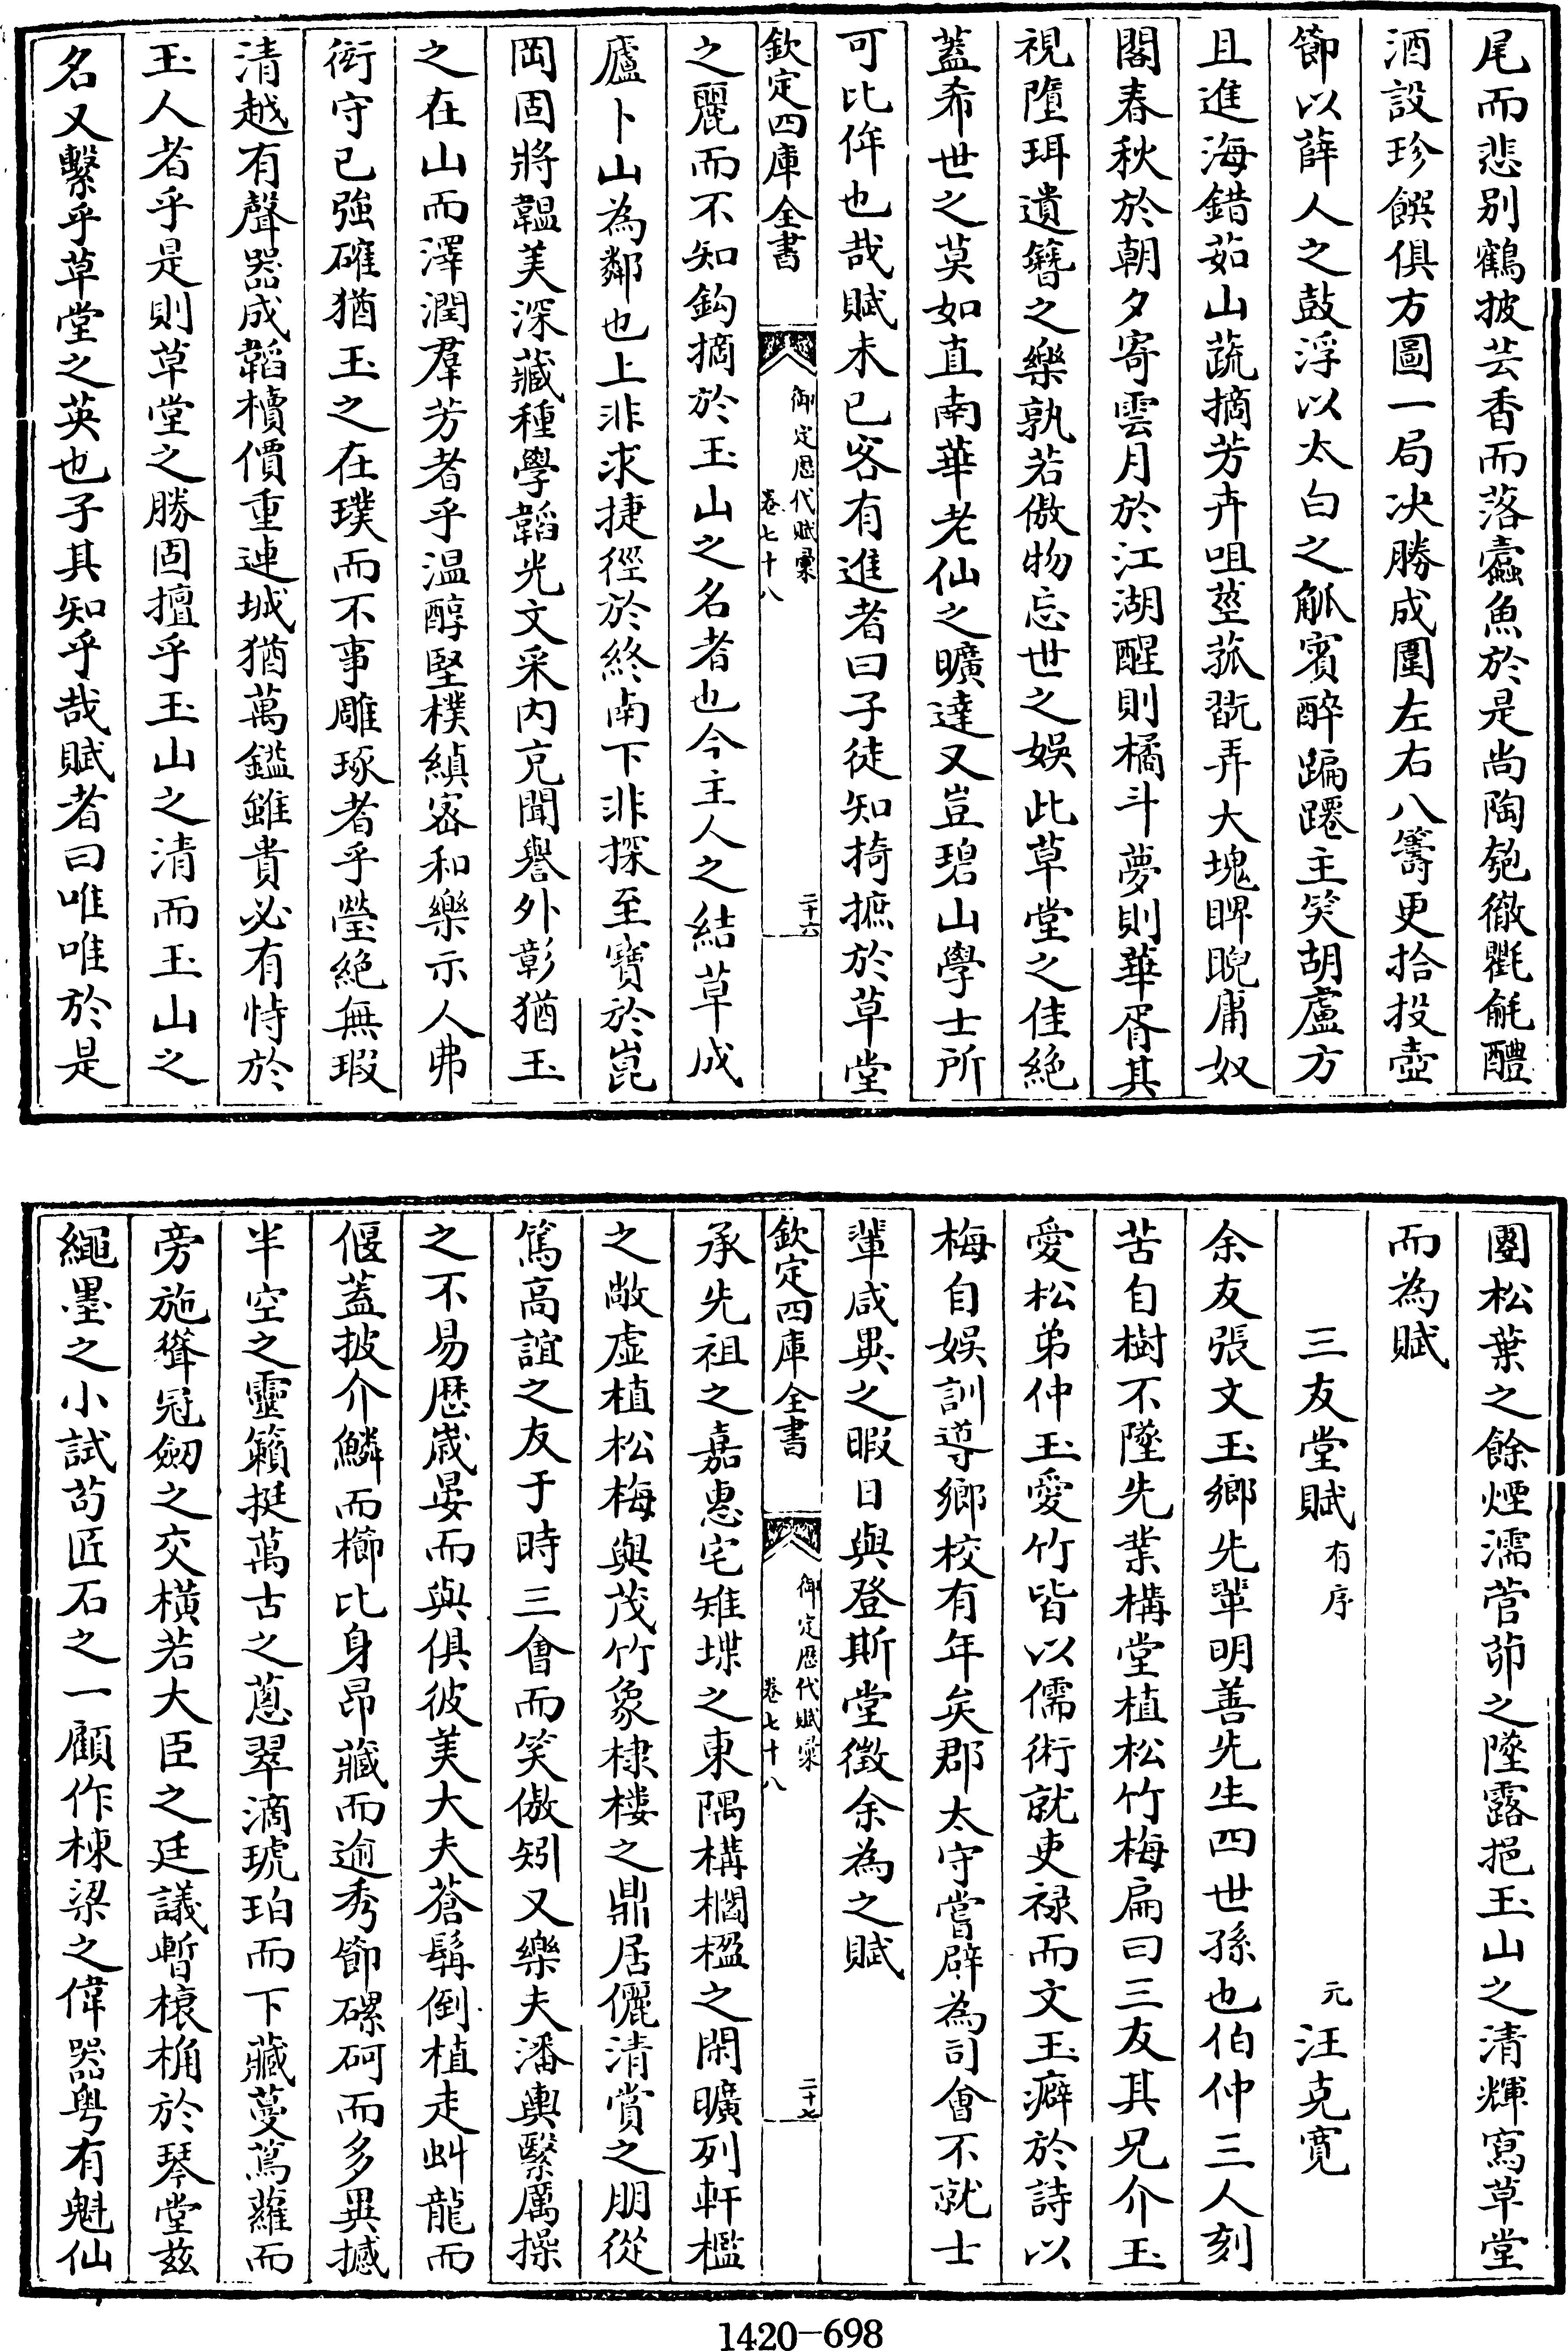 尾而悲别鶴披芸香而落蠧魚於是尚陶匏徹氍毹醴
酒設珍饌俱方圖一局決勝成圍左右八籌更拾投壺
節以薛人之鼓浮以太白之觚賓醉蹁躚主笑胡盧方
且進海錯茹山蔬摘芳卉咀莖菰翫弄大塊睥睨庸奴
閣春秋於朝夕寄雲月於江湖醒則橘斗夢則華胥其
視墮珥遺簪之樂孰若傲物忘世之娱此草堂之佳絶
蓋希世之莫如直南華老仙之曠達又豈碧山學士所
可比侔也哉賦未已客有進者曰子徒知掎摭於草堂
欽定四庫全書
御定歴代賦彚
卷七十八
二十六
之麗而不知鈎摘於玉山之名者也今主人之結草成
廬卜山為鄰也上非求捷徑於終南下非探至寶於崑
岡固將韞美深藏種學韜光文采内充聞譽外彰猶玉
之在山而澤潤羣芳者乎温醇堅樸縝密和樂示人弗
衒守已強確猶玉之在璞而不事雕琢者乎瑩絶無瑕
清越有聲器成韜櫝價重連城猶萬鎰雖貴必有恃於
玉人者乎是則草堂之勝固擅乎玉山之清而玉山之
名又繫乎草堂之英也子其知乎哉賦者曰唯唯於是
團松葉之餘煙濡菅茆之墜露挹玉山之清輝寫草堂
而為賦
三友堂賦 有序 元 汪克寛
余友張文玉鄉先輩明善先生四世孫也伯仲三人刻
苦自樹不墜先業構堂植松竹梅扁曰三友其兄介玉
愛松弟仲玉愛竹皆以儒術就吏禄而文玉癖於詩以
梅自娱訓導鄉校有年矣郡太守嘗辟為司會不就士
輩咸異之暇日與登斯堂徴余為之賦
欽定四庫全書
御定歴代賦彚
卷七十八
二十七
承先祖之嘉惠宅雉堞之東隅構櫩楹之閑曠列軒檻
之敞虚植松梅與茂竹象棣樓之鼎居儷清賞之朋從
篤高誼之友于時三會而笑傲矧又樂夫潘輿繫厲操
之不易歴歳晏而與俱彼美大夫蒼髯倒植走虯龍而
偃蓋披介鱗而櫛比身昂藏而逾秀節磥砢而多異撼
半空之靈籟挺萬古之蔥翠滴琥珀而下藏蔓蔦蘿而
旁施聳冠劒之交横若大臣之廷議暫榱桷於琴堂兹
繩墨之小試苟匠石之一顧作棟梁之偉器粤有魁仙
1420-698